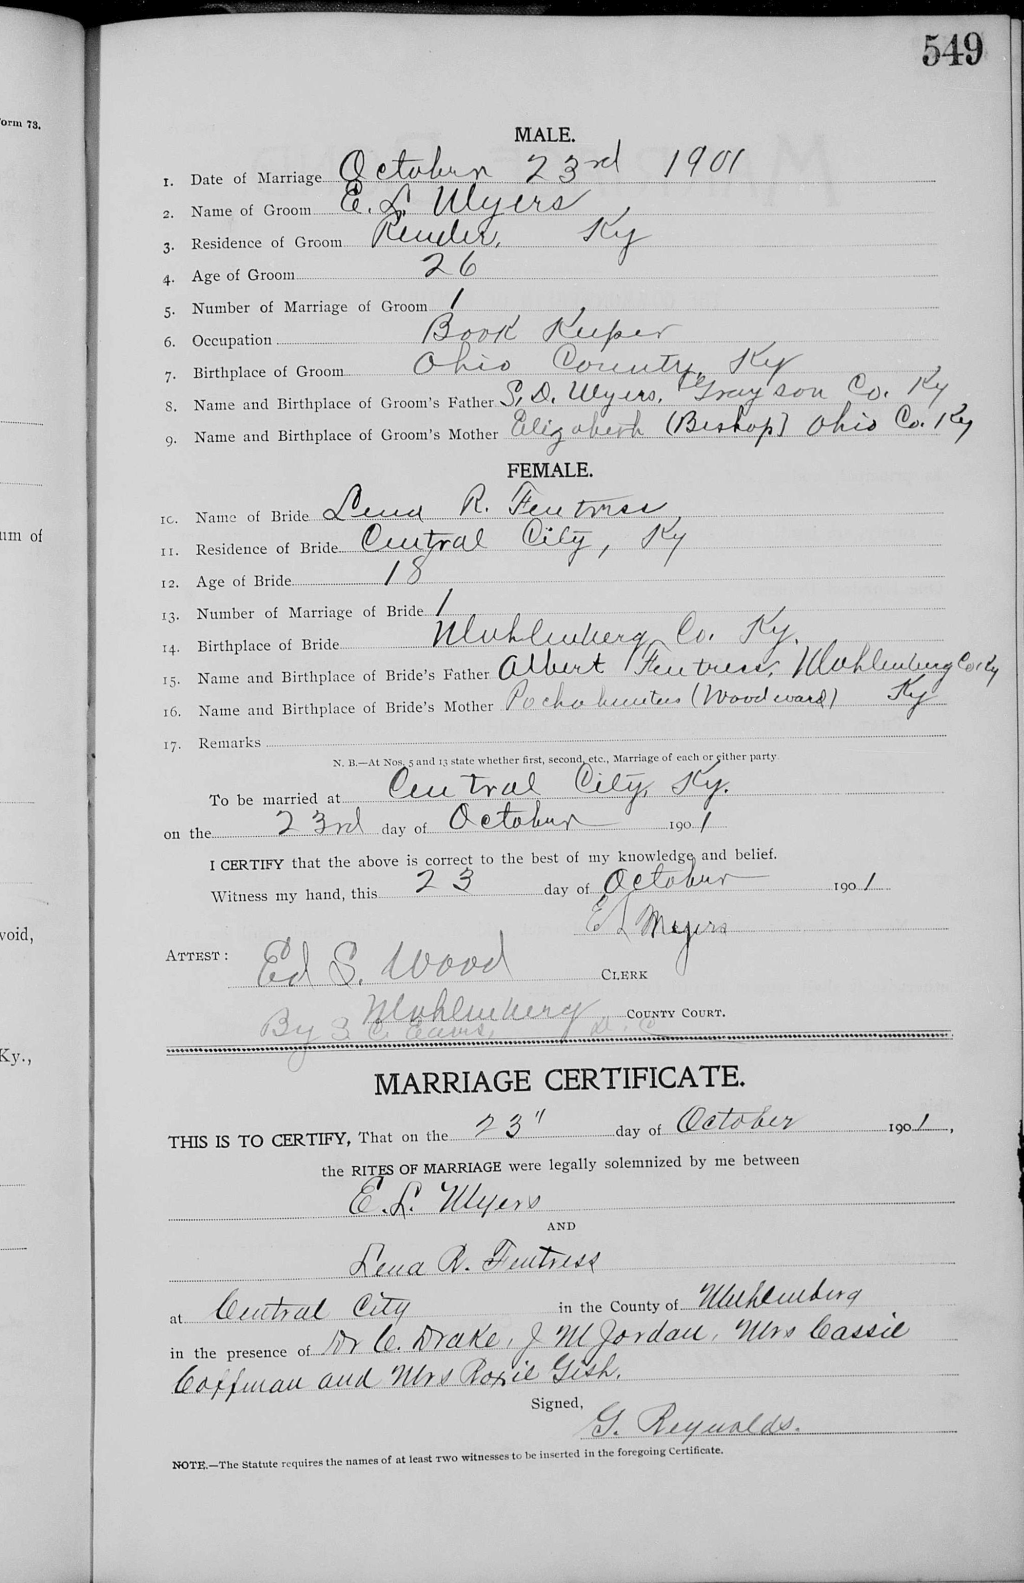 549
orm 73.
MALE.
1. Date of Marriage October 23rd 1901
2. Name of Groom E. L. Myers
3. Residence of Groom Render, Ky
4. Age of Groom 26
5. Number of Marriage of Groom 1
6. Occupation Book Keeper
7. Birthplace of Groom Ohio County, Ky
8. Name and Birthplace of Groom's Father S. D. Myers, Grayson Co. Ky
9. Name and Birthplace of Groom's Mother Elizabeth (Bishop) Ohio Co. Ky
FEMALE.
10. Name of Bride Lena R. Fentress
um of
11. Residence of Bride Central City, Ky
12. Age of Bride 18
13. Number of Marriage of Bride 1
14. Birthplace of Bride Muhlenberg Co. Ky.
15. Name and Birthplace of Bride's Father Albert Fentress, Muhlenberg Co. Ky
16. Name and Birthplace of Bride's Mother Pochahuntus (Woodward) Ky
17. Remarks
N. B.—At Nos. 5 and 13 state whether first, second, etc., Marriage of each or either party
To be married at Central City, Ky.
on the 23rd day of October 1901
I CERTIFY that the above is correct to the best of my knowledge and belief.
Witness my hand, this 23 day of October 1901
E L Myers
void,
ATTEST: Ed S. Wood CLERK
Muhlenberg COUNTY COURT.
By D. C.
Ky.,
MARRIAGE CERTIFICATE.
THIS IS TO CERTIFY, That on the 23" day of October 1901,
the RITES OF MARRIAGE were legally solemnized by me between
E. L. Myers
AND
Lena R. Fentress
at Central City in the County of Muhlenberg
in the presence of Dr C. Drake, J M Jordan, Mrs Cassie
Coffman and Mrs Roxie Gish.
Signed,
G. Reynolds.
NOTE.—The Statute requires the names of at least TWO witnesses to be inserted in the foregoing Certificate.